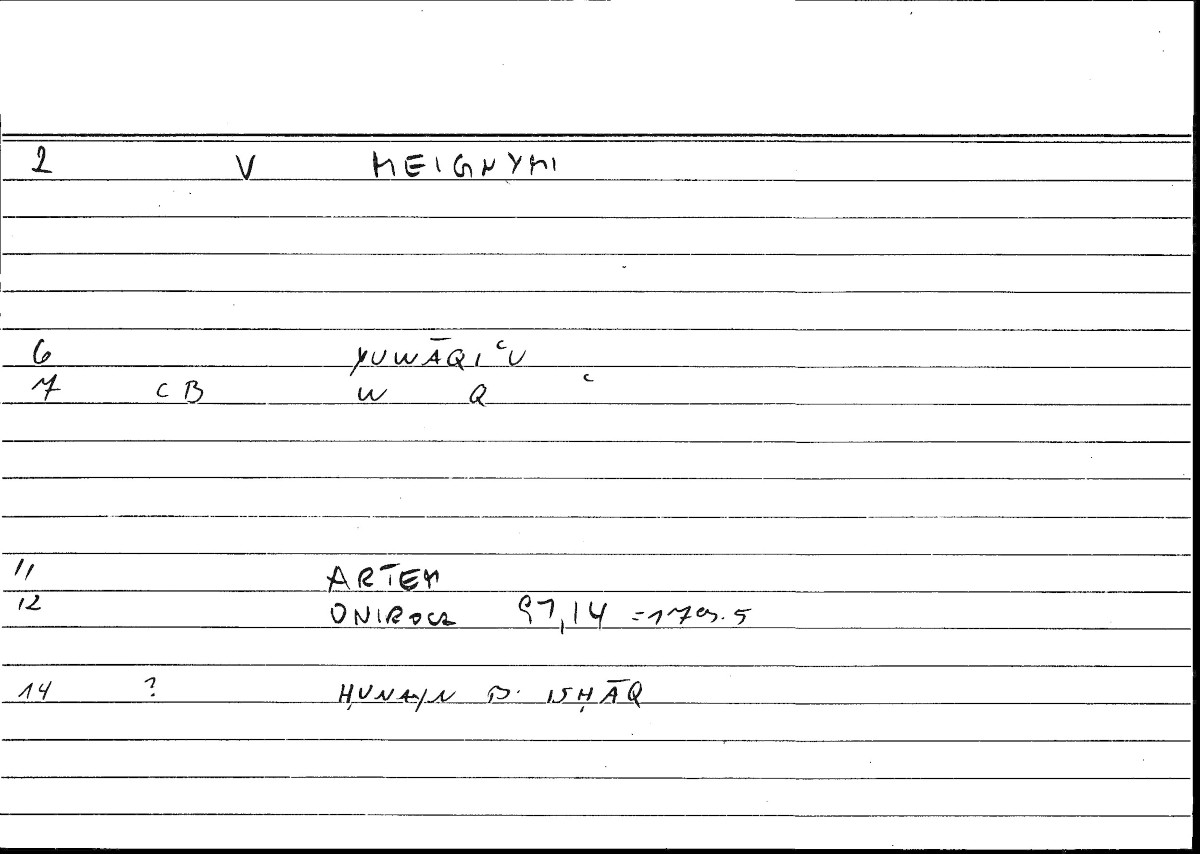 2 V MEIGNYMI
6 YUWĀQIʿU
7 CB W Q ʿ
11 ARTEM
12 ONIROCR 97,14 = 179.5
14 ? ḤUNAYN B. ISḤĀQ